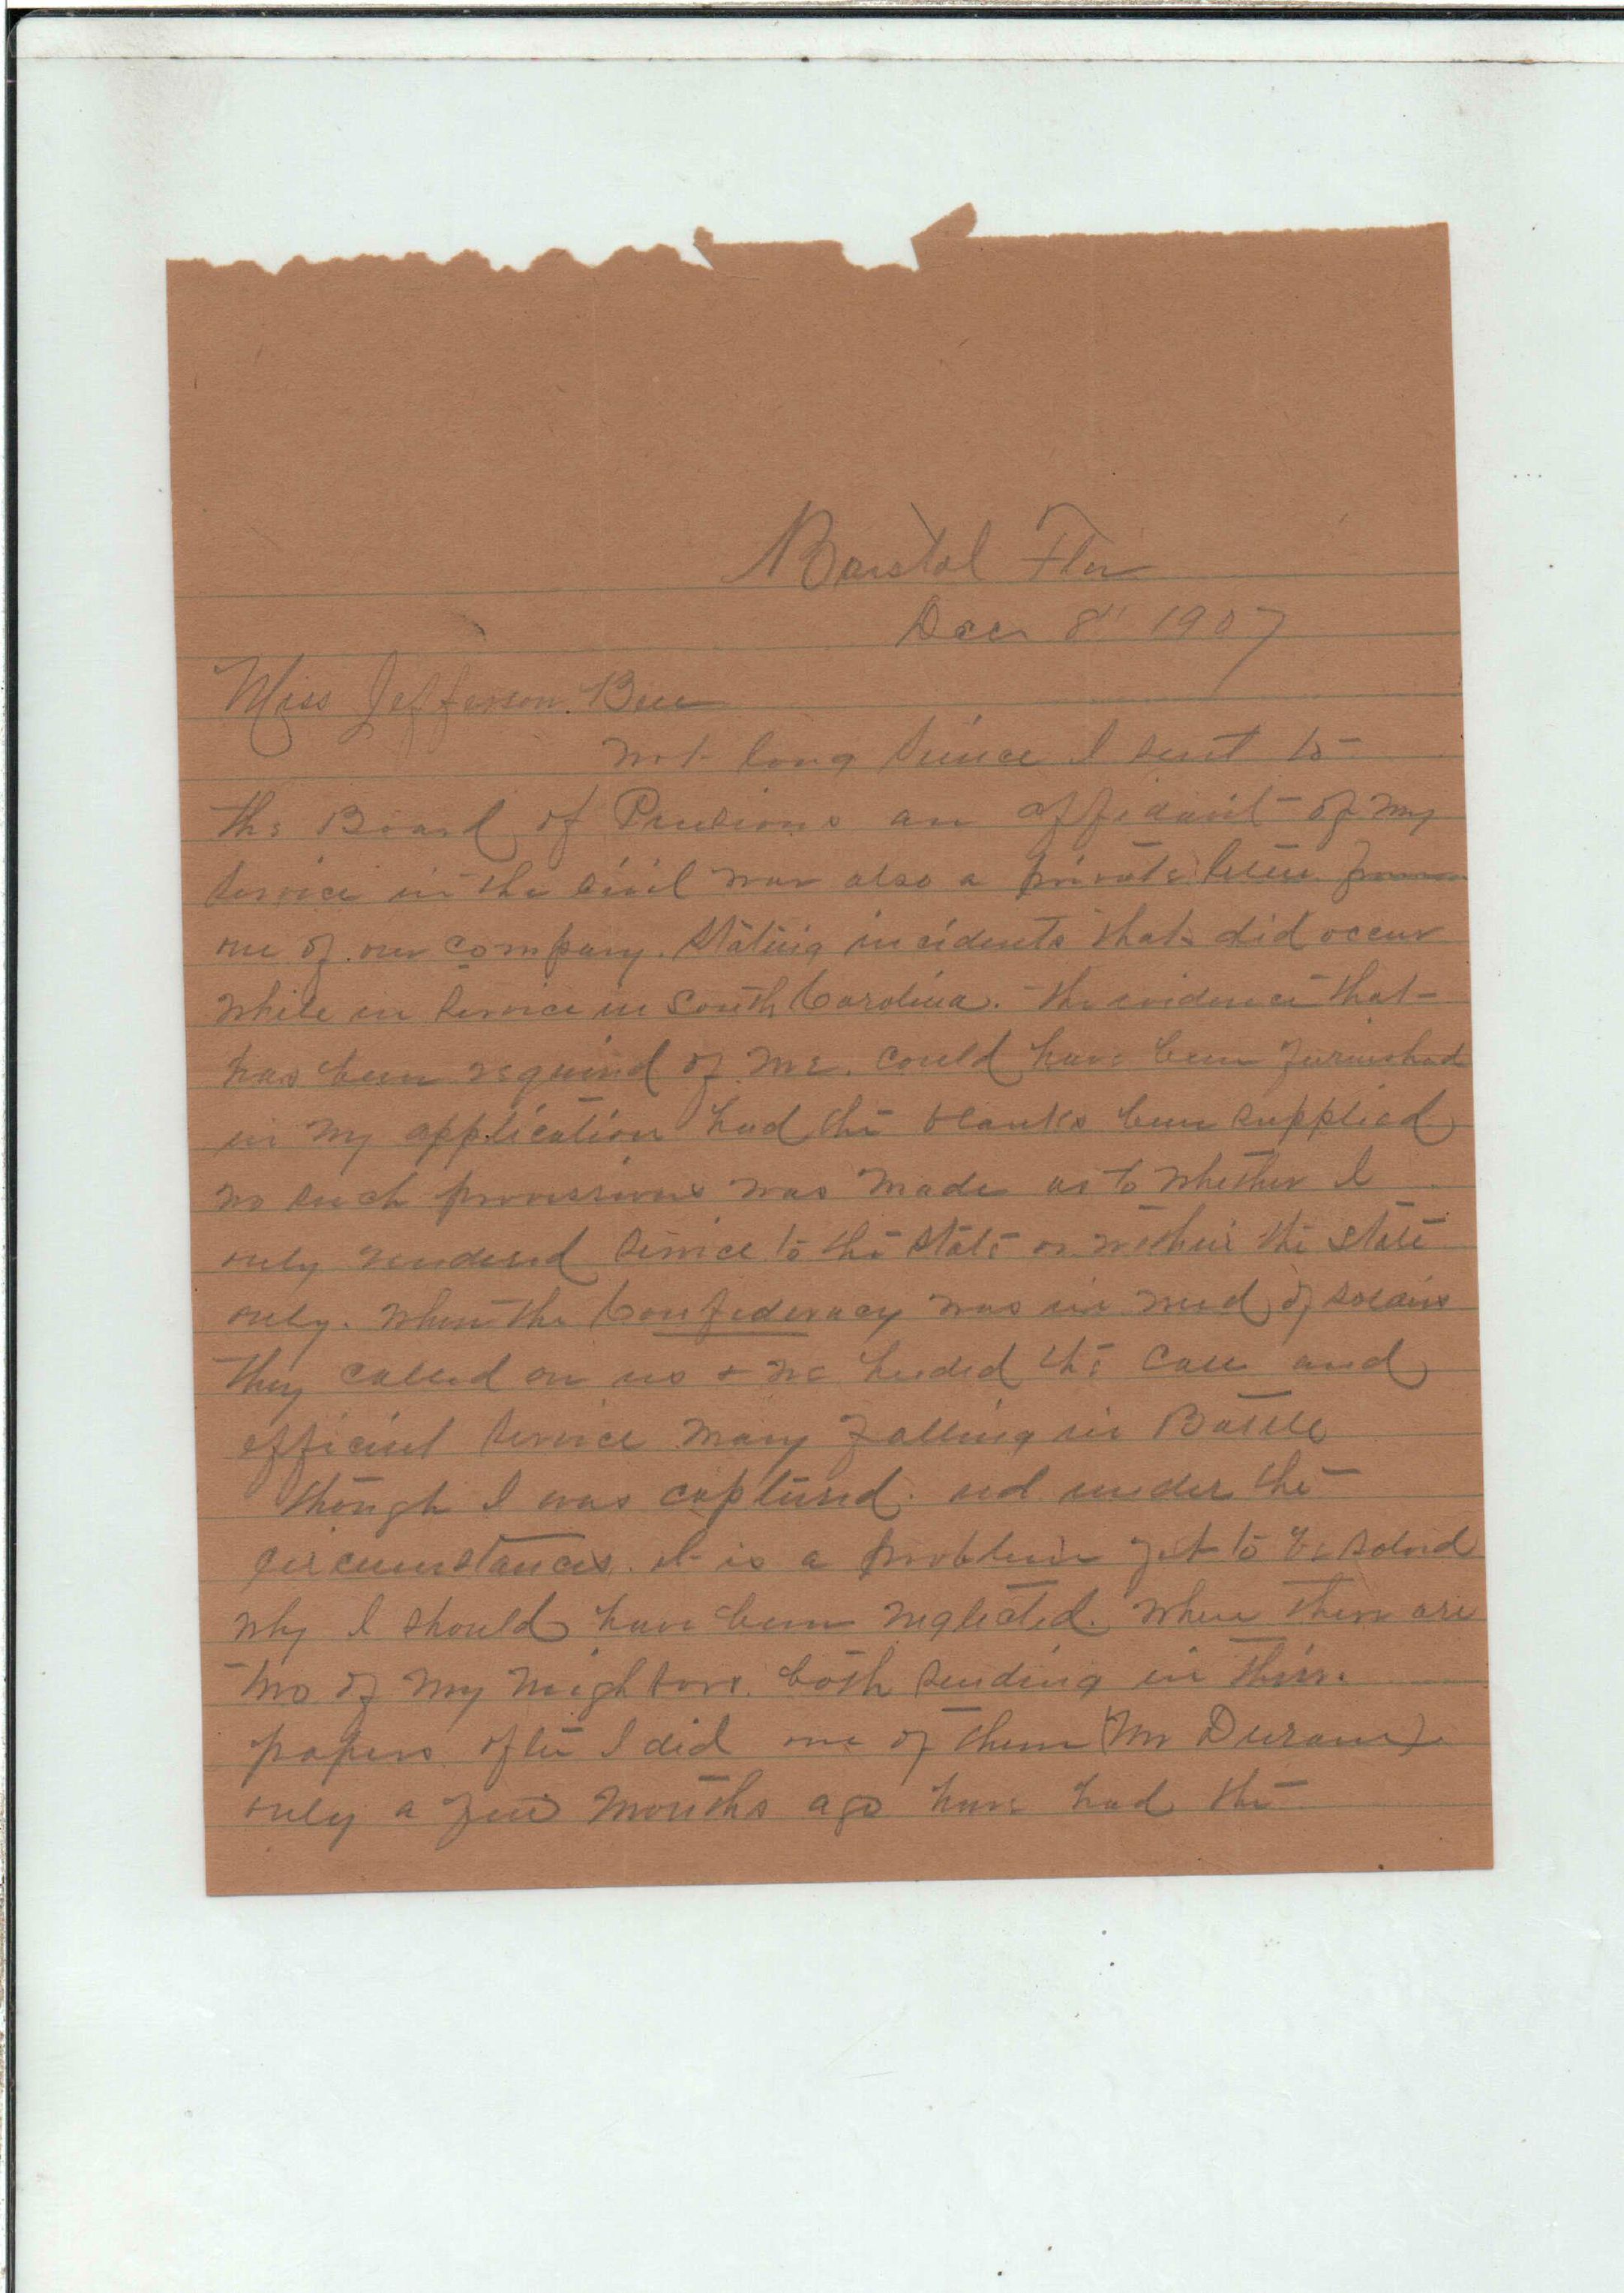 Bristol Fla
Dec 8" 1907
Miss Jefferson Bell
not long since I sent to
the Board of Pensions an affidavit of my
service in the civil war also a private letter from
one of our company. stating incidents that did occur
while in service in South Carolina. the evidence that
has been required of me. could have been furnished
in my application had the blanks been supplied
no such provissions was made as to whether I
only rendered service to the state or within the state
only. when the Confederacy was in need of
they called on us & we heeded the call and
efficient service many falling in Battle
though I was captured. and under the
circumstances. it is a problem yet to be solved
why I should have been neglected. where there are
two of my neighbors. both sending in their.
papers after I did one of them (Mr Duran)
only a few months ago have had the